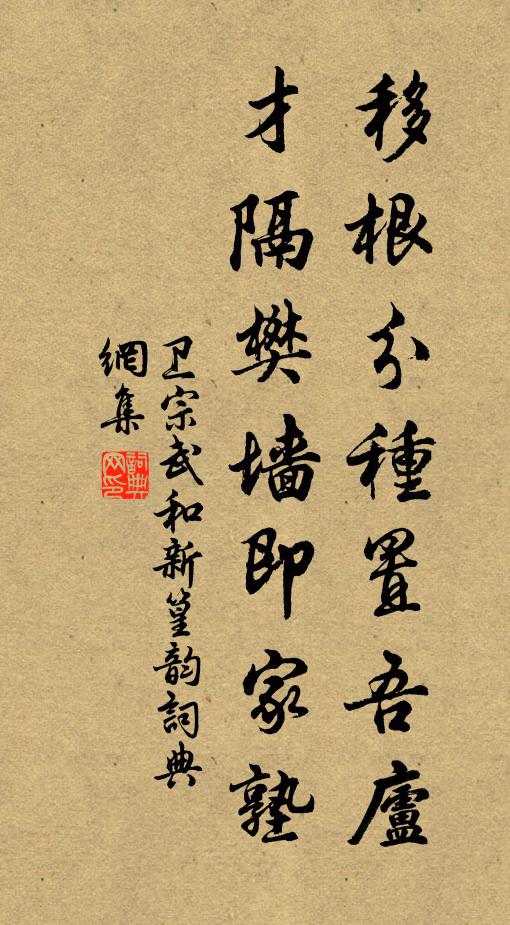 移根分種置吾廬
才隔樊墙即家塾
卫宗武和新篁韵詞典
網集
詞典
网印